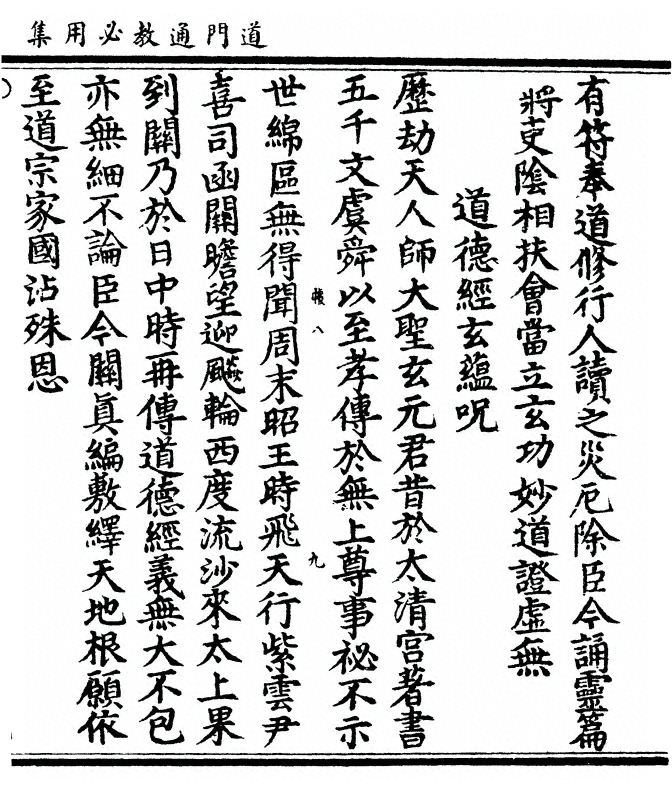 道門通教必用集
有符奉道修行人讀之災厄除臣今誦靈篇
將吏陰相扶會當立玄功妙道證虛無
道德經玄蘊呪
歷劫天人師大聖玄元君昔於太清宮著書
五千文虞舜以至孝傳於無上尊事祕不示
帳八
九
世綿區無得聞周末昭王時飛天行紫雲尹
喜司函關瞻望迎飈輪西度流沙來太上果
到關乃於日中時再傳道德經義無大不包
亦無細不論臣今闢真編敷繹天地根願依
至道宗家國沾殊恩